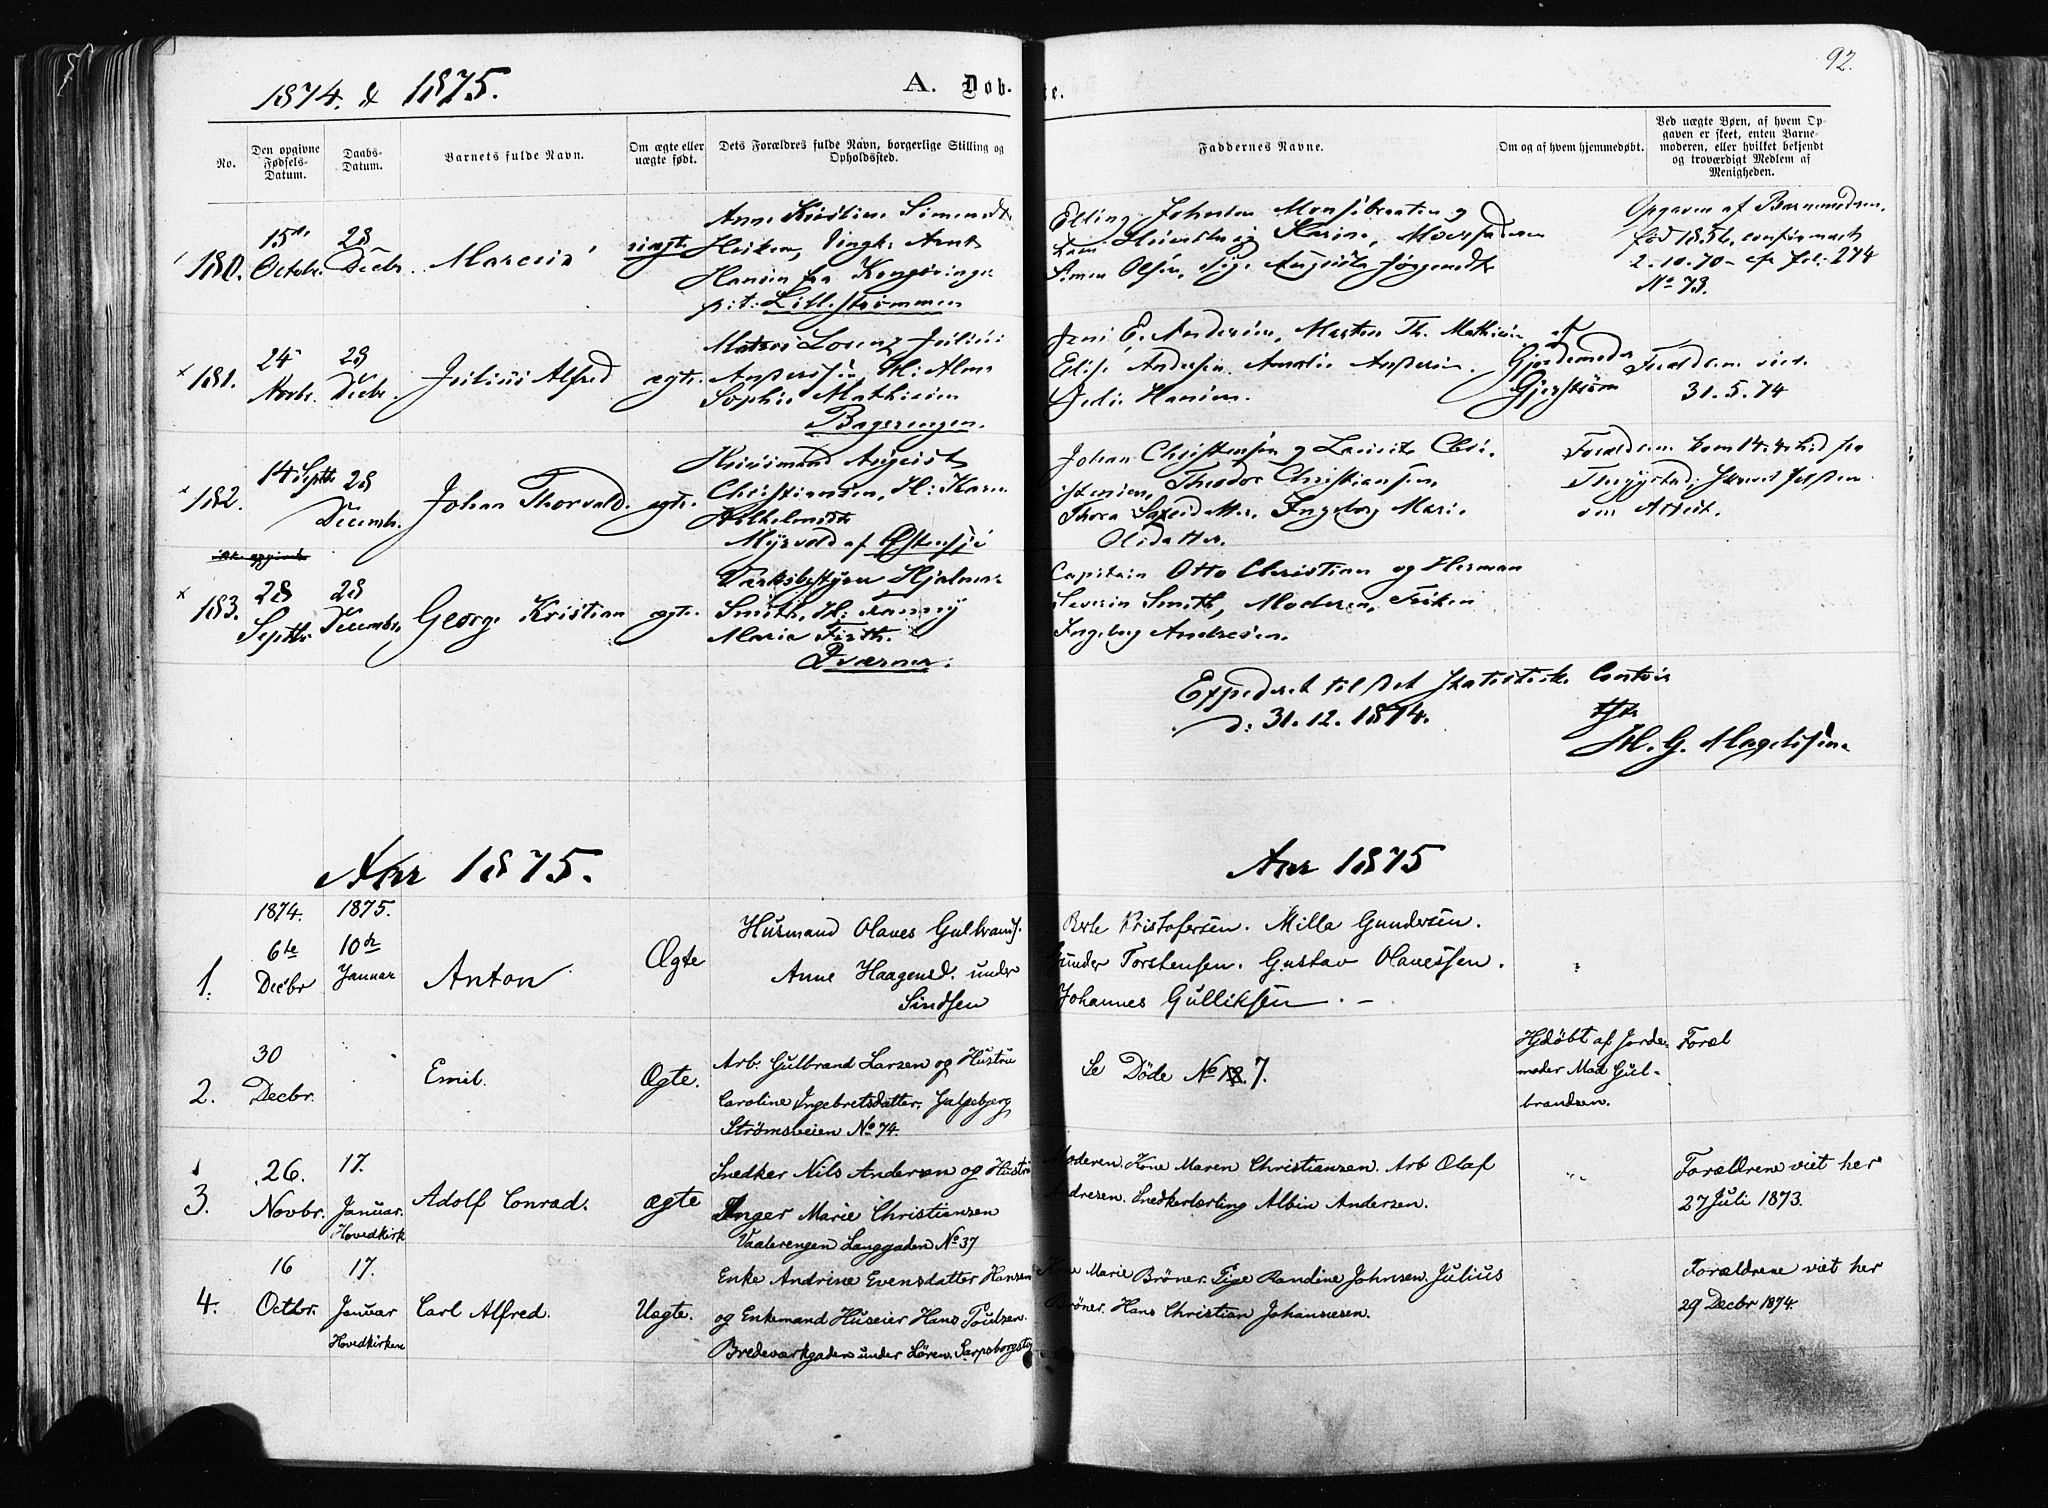 92.
1874. & 1875.
A. Døb-
te.
No.
Den opgivne Fødsels-Datum.
Daabs-Datum.
Barnets fulde Navn.
Om ægte eller uægte født.
Dets Forældres fulde Navn, borgerlige Stilling og Opholdssted.
Faddernes Navne.
Om og af hvem hjemmedøbt.
Ved uægte Børn, af hvem Opgaven er skeet, enten Barnemoderen, eller hvilket bekjendt og troværdigt Medlem af Menigheden.
180.
15de Octobr.
28 Decbr.
uægte
Hansen fra Kongsvinger
p: t: Lillestrømmen
Simen Olsen, Pige Augusta Jørgensdtr
Opgaven af Barnemoderen,
født 1856, confirmeret
2-10-70 - cfr fol: 274
No 73.
181.
24 Novbr.
28 Decbr.
Julius Alfred
ægte.
Lorenz Julius
Sophie Mathiesen
Jens E. Andersen, Morten Th. Mathisen
Elise Andersen Amalie Andersen.
Julie Hansen.
af
Gjordemoder
Gjerstrøm
Forældrene viet
31.5.74
182.
14 Septbr
28
Decembr.
Johan Thorvald.
ægte.
Huusmand August
Christiansen, H: Karen
Myrvold af Østensjø
Johan Christensen og Laurits Chri-
stensen, Theodor Christiansen,
Ingeborg Marie
Olsdatter.
183.
28 Septbr
28 Decembr.
Georg Kristian
ægte.
Værksbestyrer Hjalmar
Smith, H: Fanny
Marie Firth.
Kværner.
Capitain Otto Christian og Herman
Severin Smith, Moderen, Frøken
Ingeborg Andresen.
Expederet til det statistiske Contoir
d: 31.12.1874.
H. G. Magelssen
Aar 1875.
Aar 1875
1874.
1875.
1.
6te Decbr
10de Januar
Anton
Ægte
Husmand Olaves Gulbrands.
Anne Haagensd. under
Sindsen
Berte Kristofersen. Milla Gundersen.
Gunder Torstensen. Gustav Olavessen.
Johannes Gulliksen. -
2.
30 Decbr.
Emil.
Ægte.
Arb. Gulbrand Larsen og Hustru
Caroline Ingebretsdatter, Galgebjerg
Strømsveien No 74.
Se Døde No 7.
Hjdøbt af Jorde-
moder Mad Gul-
brandsen.
Foræl
3.
26. Novbr.
17. Januar.
Hovedkirk
Adolf Conrad.
ægte
Snedker Nils Andersen og Hustru
Inger Marie Christiansen
Vaalerengen Langgaden No 37
Moderen. Kone Maren Christiansen. Arb Olaf
Andresen. Snedkerlærling Albin Andersen.
Forældrene viet her
27 Juli 1873.
4.
16 Octbr.
17. Januar
Hovedkirken
Carl Alfred.
Uægte.
Enke Andrine Evensdatter Hansen
og Enkemand Huseier Hans Poulsen.
Bredeværkgaden under Løren. Sarpsborgsty
Marie Bröner. Pige Randine Johnsen. Julius
Brøner. Hans Christian Johannesen.
Forældrene viet her
29 Decbr 1874.